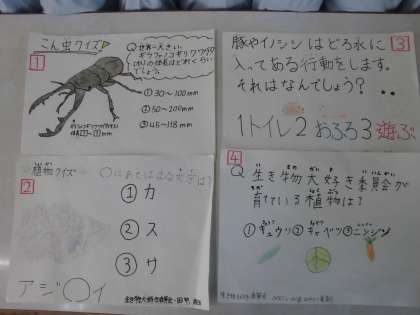 こん虫クイズ
1
Q 世界一大きい、
ギラファノコギリクワガタ
のりの体長はどれくらい
でしょう
①30〜100mm
②50〜200mm
③45〜118mm
豚やイノシシはどろ水に
3
入ってある行動をします。
それはなんでしょう?
1トイレ2おふろ3遊ぶ
植物クイズ
2
○にあてはまる文字は?
①カ
②ス
③サ
アジ○イ
4
Q 生き物大好き委員会が
育てている植物は?
①キュウリ②キャベツ③ニンジン